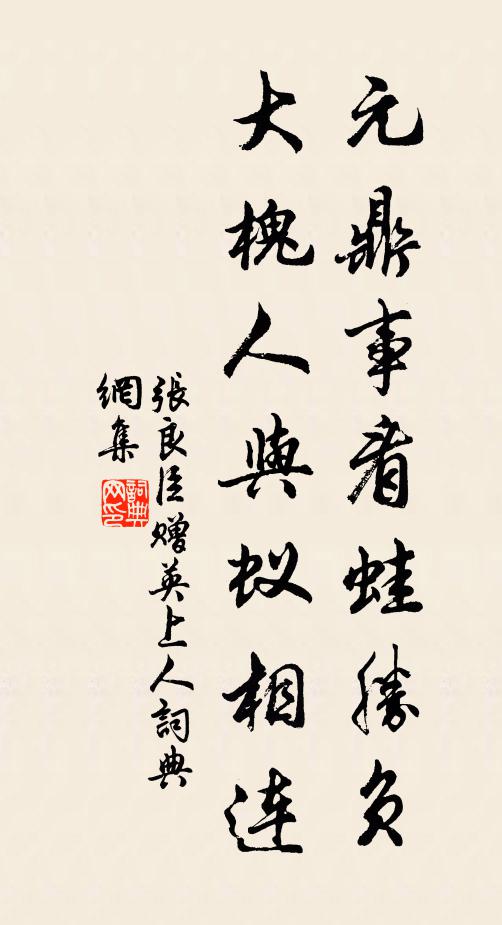 元鼎事者蛙勝負
大槐人與蚁相連
張良臣贈英上人詞典
網集
詞典
网印